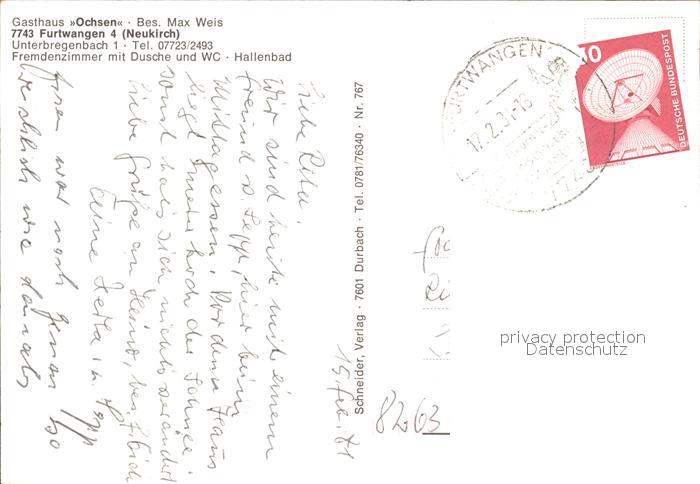 Gasthaus »Ochsen« · Bes. Max Weis
7743 Furtwangen 4 (Neukirch)
Unterbregenbach 1 · Tel. 07723/2493
Fremdenzimmer mit Dusche und WC · Hallenbad
Liebe Rita!
Wir sind heute mit einem
Freund v. Sepp, hier beim
Mittagessen. Vor dem Haus
liegt 1 meter hoch der Schnee.
sonst hat sich nichts verändert
Liebe Grüße an Heinz, bes. Dich
Deine u. Sepp
Essen war noch genau so
reichlich wie damals,
15. Feb. 81
Schneider, Verlag · 7601 Durbach · Tel. 0781/76340 · Nr. 767
FURTWANGEN
17.2.81-16
DEUTSCHE BUNDESPOST
8263
privacy protection
Datenschutz